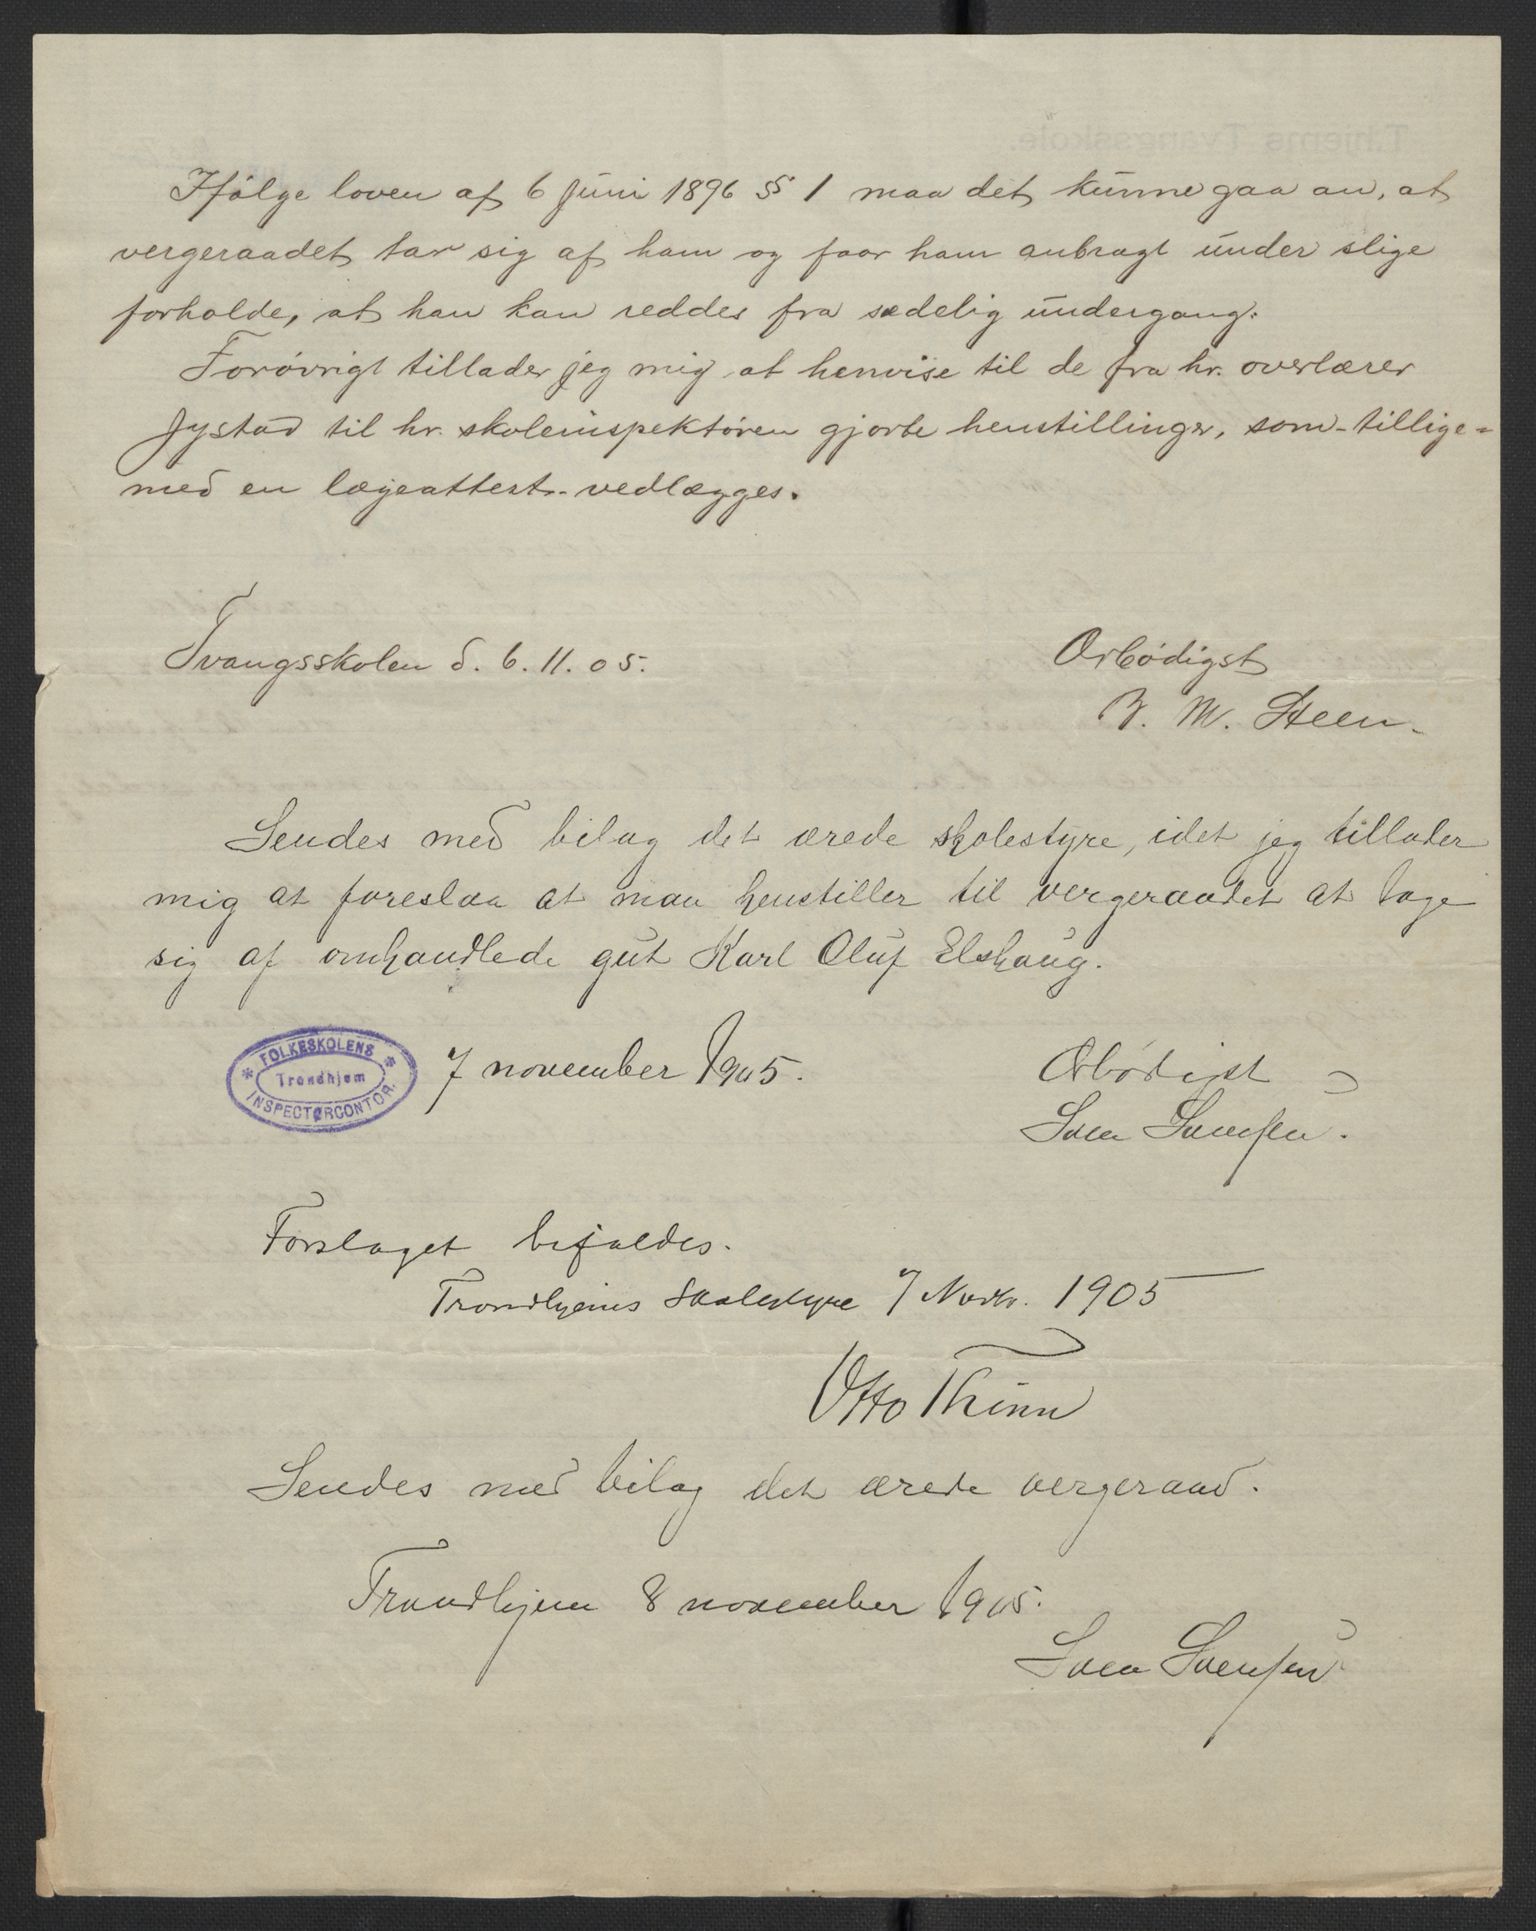 Ifølge loven af 6 Juni 1896 § 1 maa det kunne gaa an, at
vergeraadet tar sig af ham og faar ham anbragt under slige
forholde, at han kan reddes fra sædelig undergang.
Forøvrigt tillader jeg mig at henvise til de fra hr. overlærer
Jystad til hr. skoleinspektøren gjorte henstillinger, som tillige=
med en lægeattest vedlægges.
Tvangsskolen d. 6. 11. 05.
Ærbødigst
M. Steen.
Sendes med bilag det ærede skolestyre, idet jeg tillader
mig at foreslaa at man henstiller til vergeraadet at tage
sig af omhandlede gut Karl Oluf Elshaug.
FOLKESKOLENS
Trondhjem
INSPECTØRCONTOR.
7 november 1905.
Ærbødigst
Sven Svensen.
Forslaget bifaldes.
Trondhjems Skolestyre 7 Novbr. 1905
Otto Thinn
Sendes med bilag det ærede vergeraad.
Trondhjem 8 november 1905.
Sven Svensen